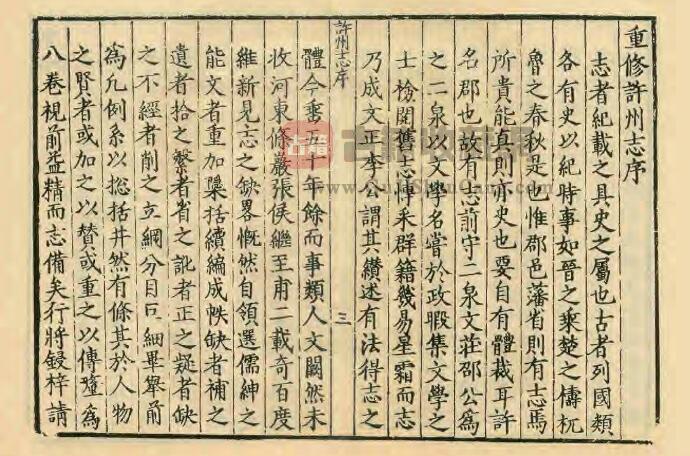 重修許州志序
志者紀載之具史之屬也古者列國類
各有史以紀時事如晉之乘楚之檮杌
魯之春秋是也惟郡邑藩省則有志焉
所貴能真則亦史也要自有體裁耳許
名郡也故有志前守二泉文莊邵公為
之二泉以文學名嘗於政暇集文學之
士檢閱舊志博采群籍幾易星霜而志
乃成文正李公謂其纘述有法得志之
許州志序
三
體今垂五十年餘而事類人文闕然未
收河東條嚴張侯繼至甫二載奇百度
維新見志之缺畧慨然自領選儒紳之
能文者重加檃括續編成帙缺者補之
遺者拾之繁者省之訛者正之疑者缺
之不經者削之立綱分目巨細畢舉前
為凡例系以總括井然有條其於人物
之賢者或加之以贊或重之以傳釐為
八卷視前益精而志備矣行將鋟梓請